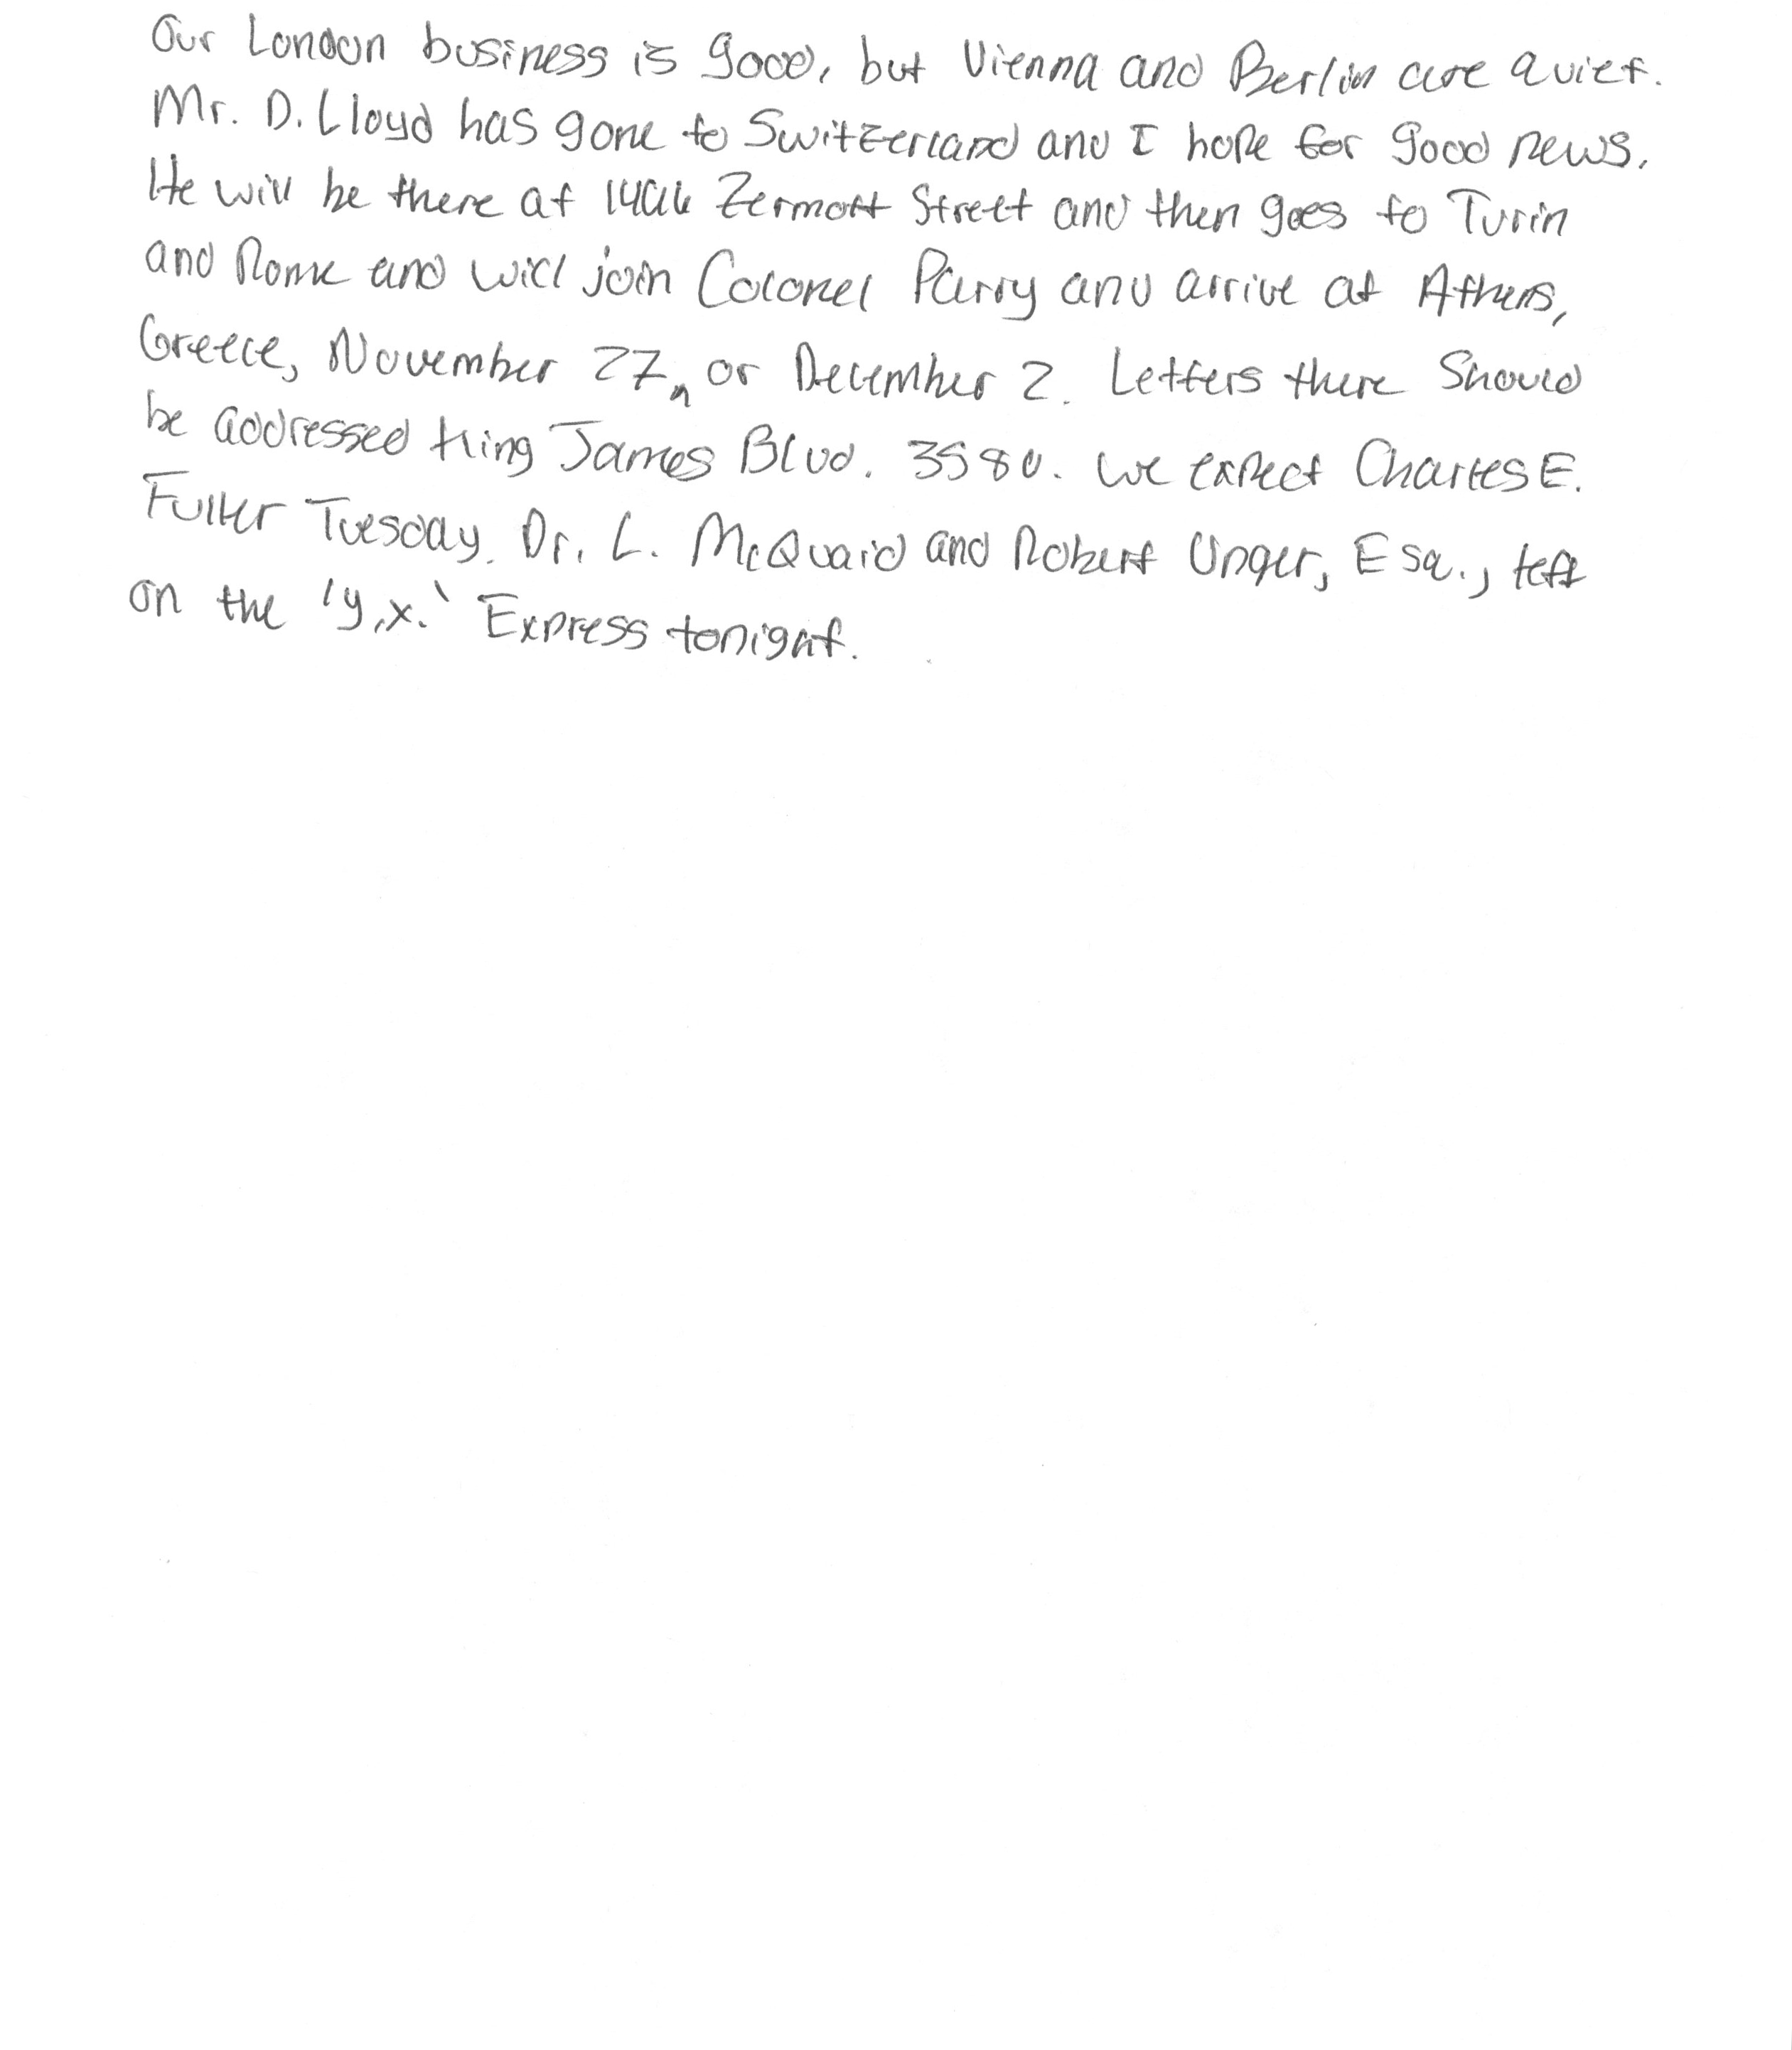 Our London business is good, but Vienna and Berlin are quiet.
Mr. D. Lloyd has gone to Switzerland and I hope for good news.
He will be there at Zermott Street and then goes to Turin
and Rome and will join Colonel Parry and arrive at Athens,
Greece, November 27, or December 2. Letters there Should
be addressed King James Blvd. 3580. We expect Charles E.
Fuller Tuesday. Dr. L. McQuaid and Robert Unger, Esq., left
on the 'y.x.' Express tonight.